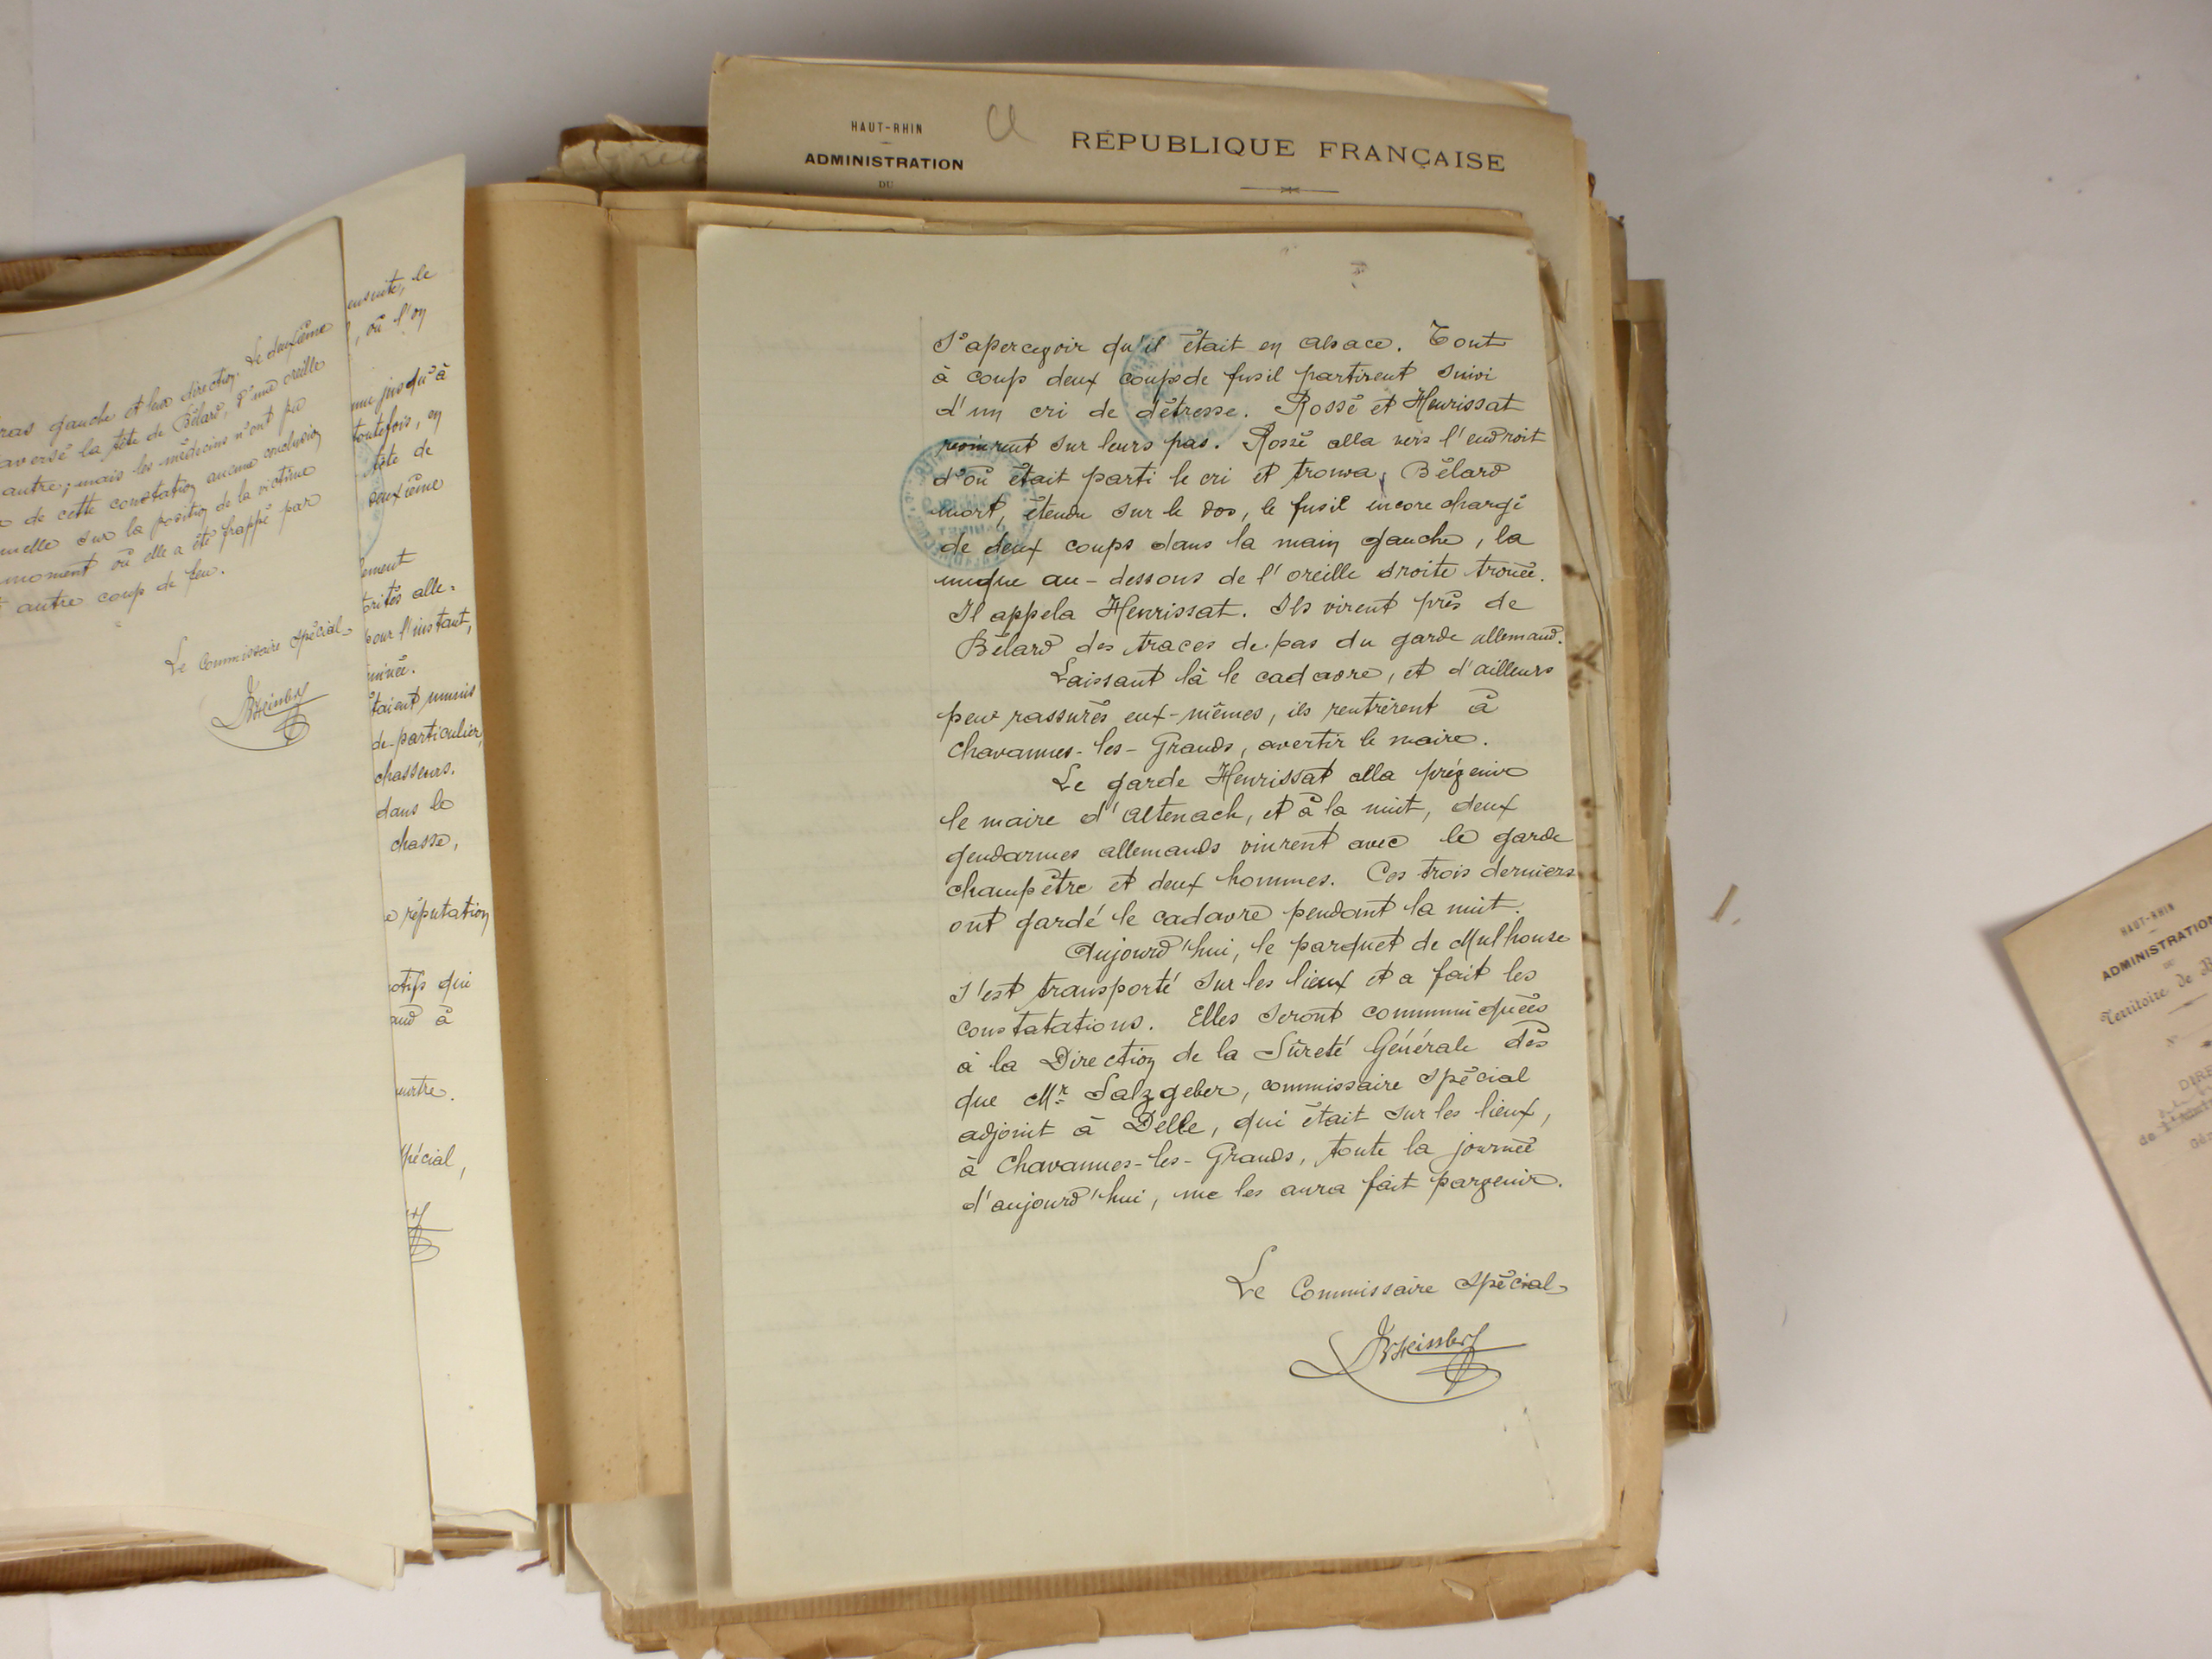 HAUT-RHIN
ADMINISTRATION
DU
RÉPUBLIQUE FRANÇAISE
gauche et leur direction. Le deuxième
la tête de Bélard, d'une oreille
autre; mais les médecins n'ont pu
de cette constatation aucune conclusion
sur la position de la victime
moment où elle a été frappé par
autre coup de feu.
Le Commissaire spécial
ensuite, le
, où l'on
jusqu'à
toutefois, en
tête de
pour l'instant,
munis
de particulier,
chasseurs.
dans le
chasse,
réputation
qui
à
spécial,
s'apercevoir qu'il était en Alsace. Tout
à coup deux coups de fusil partirent suivi
d'un cri de détresse. Rossé et Henrissat
revinrent sur leurs pas. Rossé alla vers l'endroit
d'où était parti le cri et trouva, Bélard
mort, étendu sur le dos, le fusil encore chargé
de deux coups dans la main gauche, la
nuque au-dessous de l'oreille droite trouée.
Il appela Henrissat. Ils virent près de
Bélard des traces de pas du garde allemand.
Laissant là le cadavre, et d'ailleurs
peu rassurés eux-mêmes, ils rentrèrent à
Chavannes-les-Grands, avertir le maire.
Le garde Henrissat alla prévenir
le maire d'Altenach, et à la nuit, deux
gendarmes allemands vinrent avec le garde
champêtre et deux hommes. Ces trois derniers
ont gardé le cadavre pendant la nuit.
Aujourd'hui, le parquet de Mulhouse
s'est transporté sur les lieux et a fait les
constatations. Elles seront communiquées
à la Direction de la Sûreté Générale dès
que Mr Salzgeber, commissaire spécial
adjoint à Delle, qui était sur les lieux,
à Chavannes-les-Grands, toute la journée
d'aujourd'hui, me les aura fait parvenir.
Le Commissaire spécial
HAUT-RHIN
ADMINISTRATION
DU
Territoire de